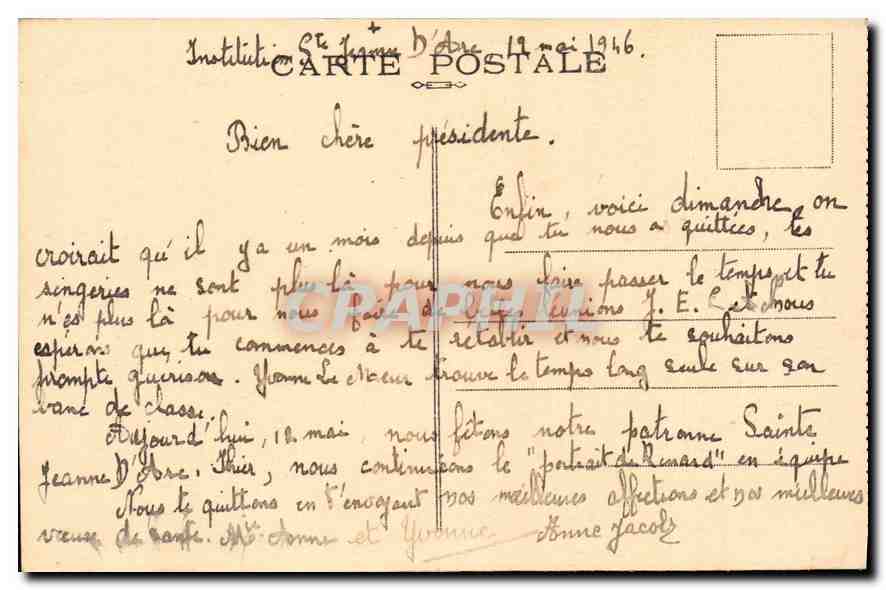 Institution Ste Jeanne D'Arc 12 mai 1946.
CARTE POSTALE
Bien chère présidente.
Enfin, voici dimanche, on
croirait qu'il y a un mois depuis que tu nous a quittées, tes
singeries ne sont plus là pour nous faire passer le temps, et tu
n'es plus là pour nous faire de réunions J. E. C. et nous
espérons que tu commences à te rétablir et nous te souhaitons
prompte guérison. Yvonne Le Moeur trouve le temps long seule sur son
banc de classe.
Aujourd'hui, 12 mai, nous fêtons notre patronne Sainte
Jeanne D'Arc. Hier, nous continuions le "portrait du Renard" en équipe
Nous te quittons en t'envoyant nos meilleures affections et nos meilleurs
voeux de santé. Mie Anne et Yvonne Anne Jacob
CPAPHIL